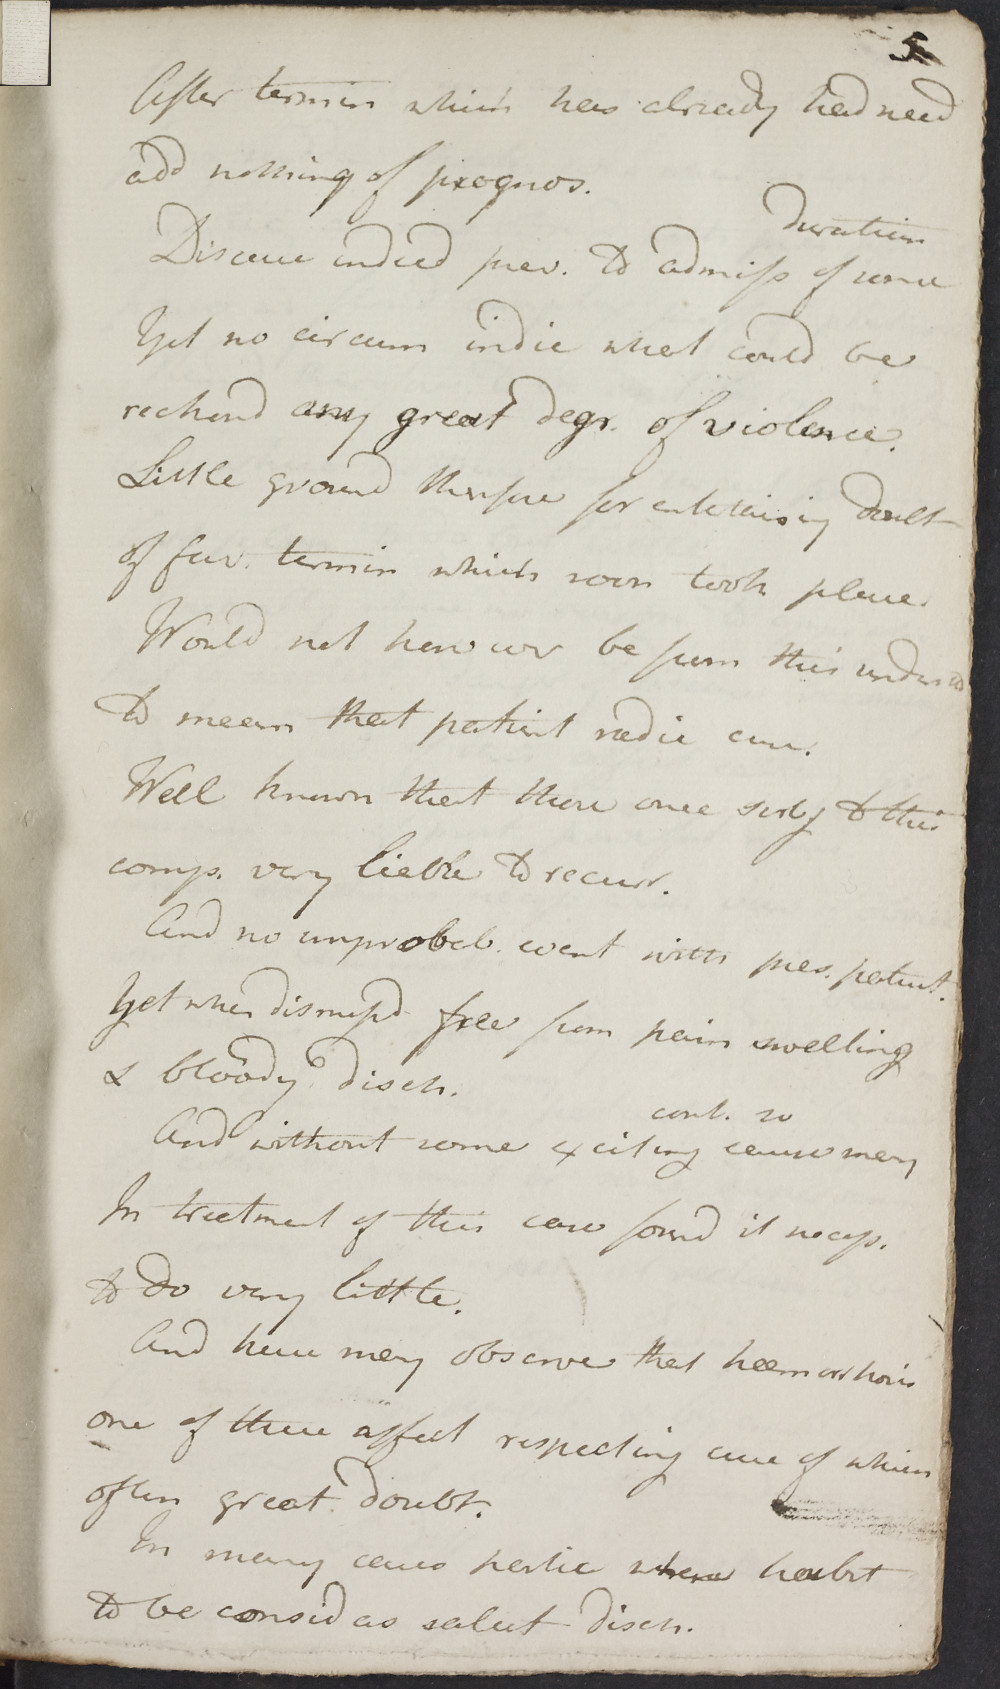 5
After termin which has already had need
add nothing of prognos.
duration
Disease indeed prev. to admiss of some
Yet no circum indic what could be
reckond any great degr. of violence.
Little ground therefore for entertaining doubt
of fav. termin which soon took place.
Would not however be from this understd
to mean that patient radic cur.
Well known that those once subj to this
comp. very liable to recurr.
And no improbab. event with pres. patient.
Yet when dismissd free from pain swelling
& bloody disch.
cont. so
And without some exciting cause may
In treatment of this case found it necess.
to do very little.
And here may observe that haemorrhois
one of those affect respecting cure of which
often great doubt.
In many cases partic where habit
to be consid as salut disch.